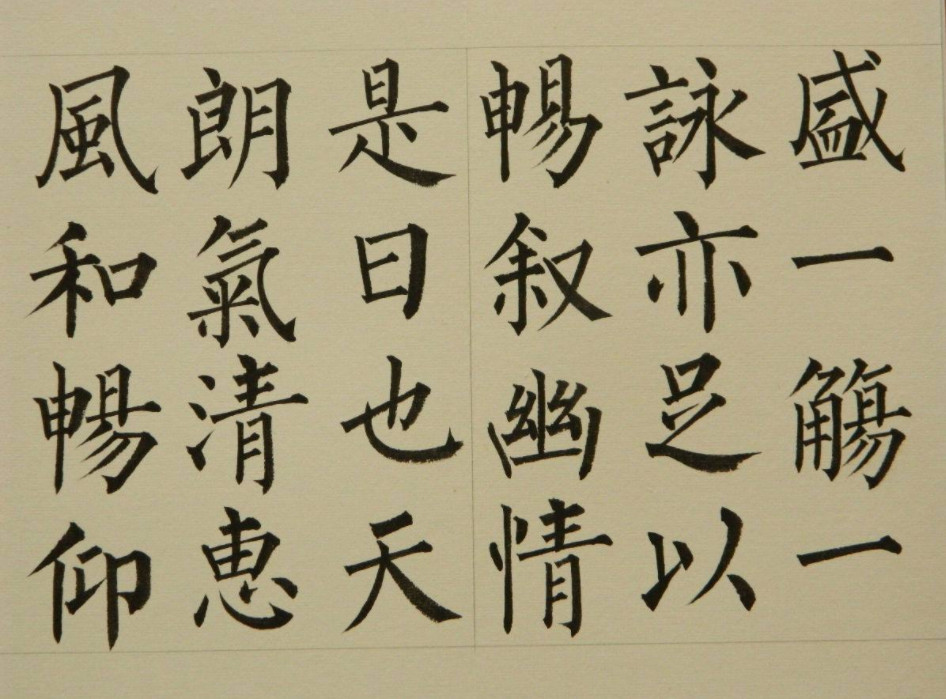 盛一觴一
詠亦足以
暢叙幽情
是日也天
朗氣清恵
風和暢仰